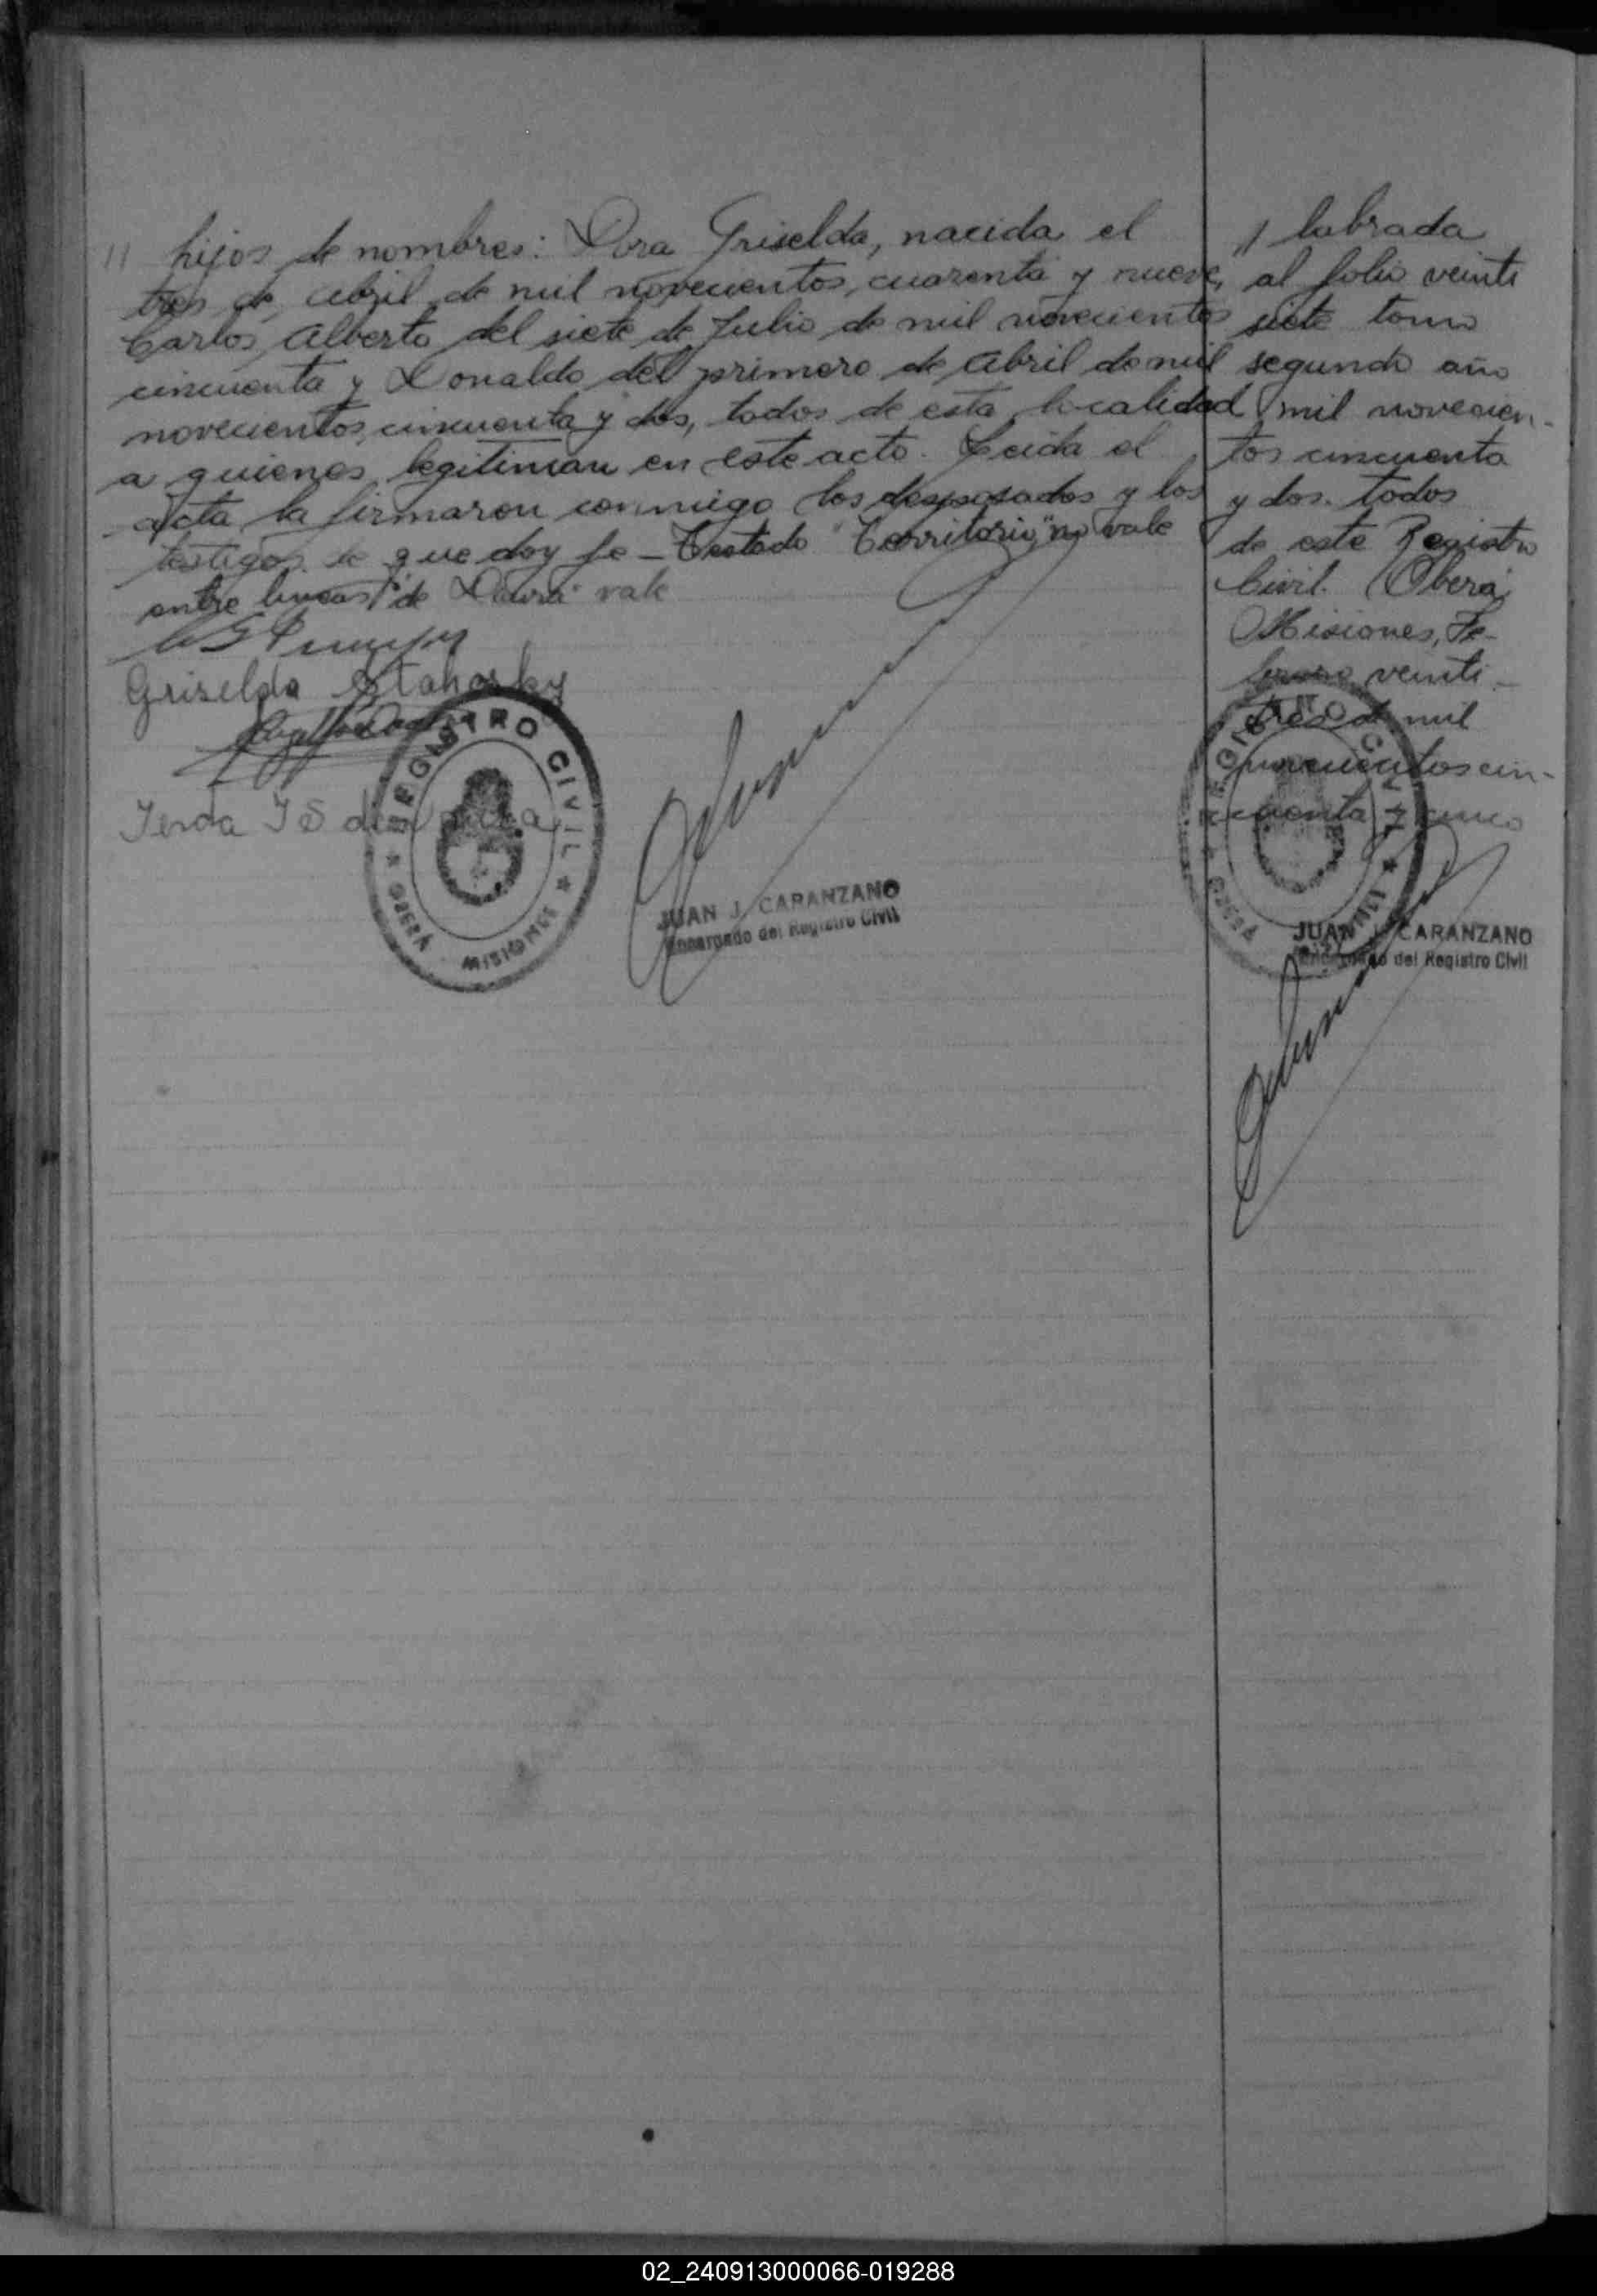 // hijos de nombres: Dora Griselda, nacida el
tres de Abril de mil novecientos cuarenta y nueve,
Carlos Alberto del siete de Julio de mil novecientos
cincuenta y Donaldo del primero de Abril de mil
novecientos cincuenta y dos, todos de esta localidad
a quienes legitiman en este acto. Leida el
acta la firmaron conmigo los desposados y los
testigos de que doy fe - Testado "Territorio" no vale
entre lineas "de" vale
Griselda Stahorsky
REGISTRO CIVIL
OBERÁ MISIONES
JUAN J. CARANZANO
Encargado del Registro Civil
// labrada
al folio veinti
siete tomo
segundo año
mil novecien-
tos cincuenta
y dos. todos
de este Registro
Civil. Oberá,
Misiones, Fe-
brero veinti-
tres de mil
novecientos cin-
cuenta y cinco
REGISTRO CIVIL
OBERÁ MISIONES
JUAN J. CARANZANO
Encargado del Registro Civil
02_240913000066-019288